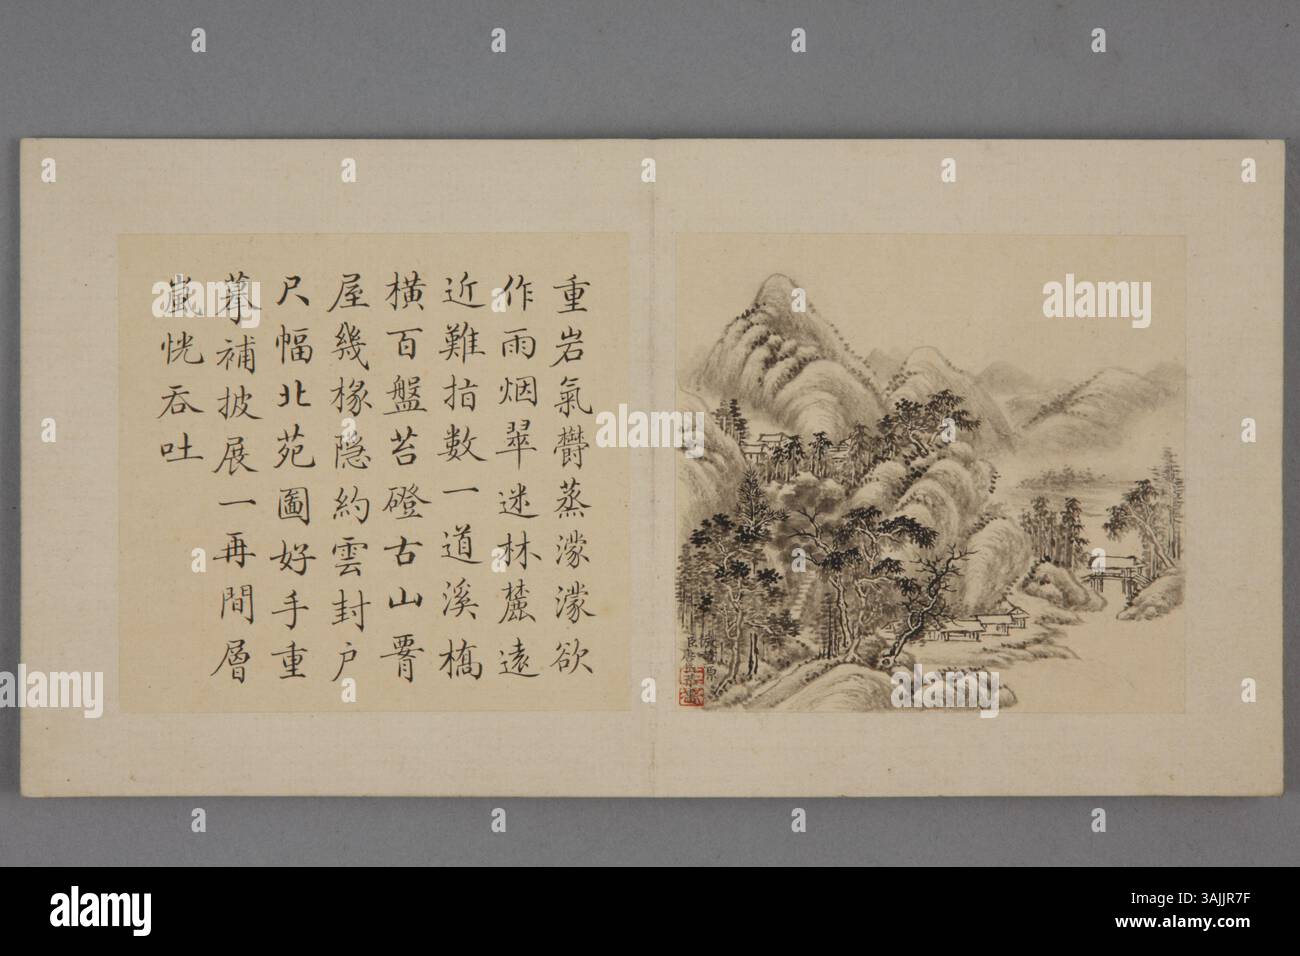 重岩氣欝蒸濛濛欲
作雨烟翠迷林麓遠
近難指數一道溪橋
橫百盤苔磴古山腎
屋幾椽隱約雲封戶
尺幅北苑圖好手重
摹補披展一再間層
嵐恍吞吐
臣唐岱
alamy
Image ID: 3AJJR7F
www.alamy.com